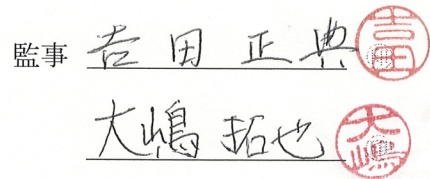 監事 吉田正典 吉田
大嶋拓也 大嶋